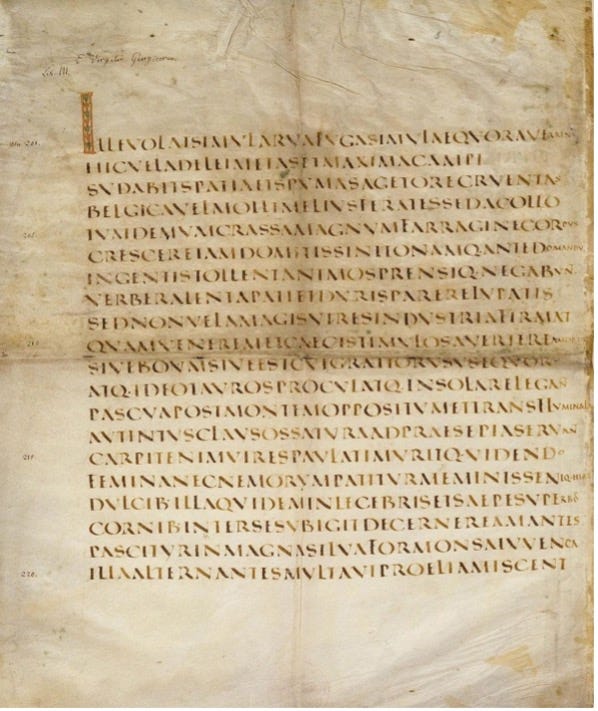 E Virgilii Georgicorum
Lib. III.
ILLEVOLATSIMVLARVAFVGASIMVLAEQVORAVE
HICVELADELEIMETASETMAXIMACAMPI
SVDABITSPATIAETSPVMASAGETORECRVENTAS
BELGICAVELMOLLIMELIVSFERATESSEDACOLLO
205. TVMDEMVMCRASSAMAGNVMFARRAGINECORPVS
CRESCEREIAMDOMITISSINITONAMQANTEDOMANDV
INGENTISTOLLENTANIMOSPRENSIQ·NEGABVN
VERBERALENTAPATIETDVRISPARERELVPATIS
SEDNONVLLAMAGISVIRESINDVSTRIAFIRMAT
210. QVAMVENEREMETCAECISTIMVLOSAVERTEREAMORIS
SIVEBOVMSIVEESTCVIGRATIORVSVSEQVOR
ATQ·IDEOTAVROSPROCVLATQ·INSOLARELEGAN
PASCVAPOSTMONTEMOPPOSITVMETTRANSFLVMINALA
AVTINTVSCLAVSOSSATVRAADPRAESEPIASERVAN
215. CARPITENIMVIRESPAVLATIMVRITQVIDENDO
FEMINANECNEMORVMPATITVRMEMINISSEN
DVLCIBILLAQVIDEMINLECEBRISETSAEPESVPERBO
CORNIBINTERSESVBIGITDECERNEREAMANTES
PASCITVRINMAGNASILVAFORMONSAIVVENCA
220. ILLAALTERNANTESMVLTAVIPROELIAMISCENT